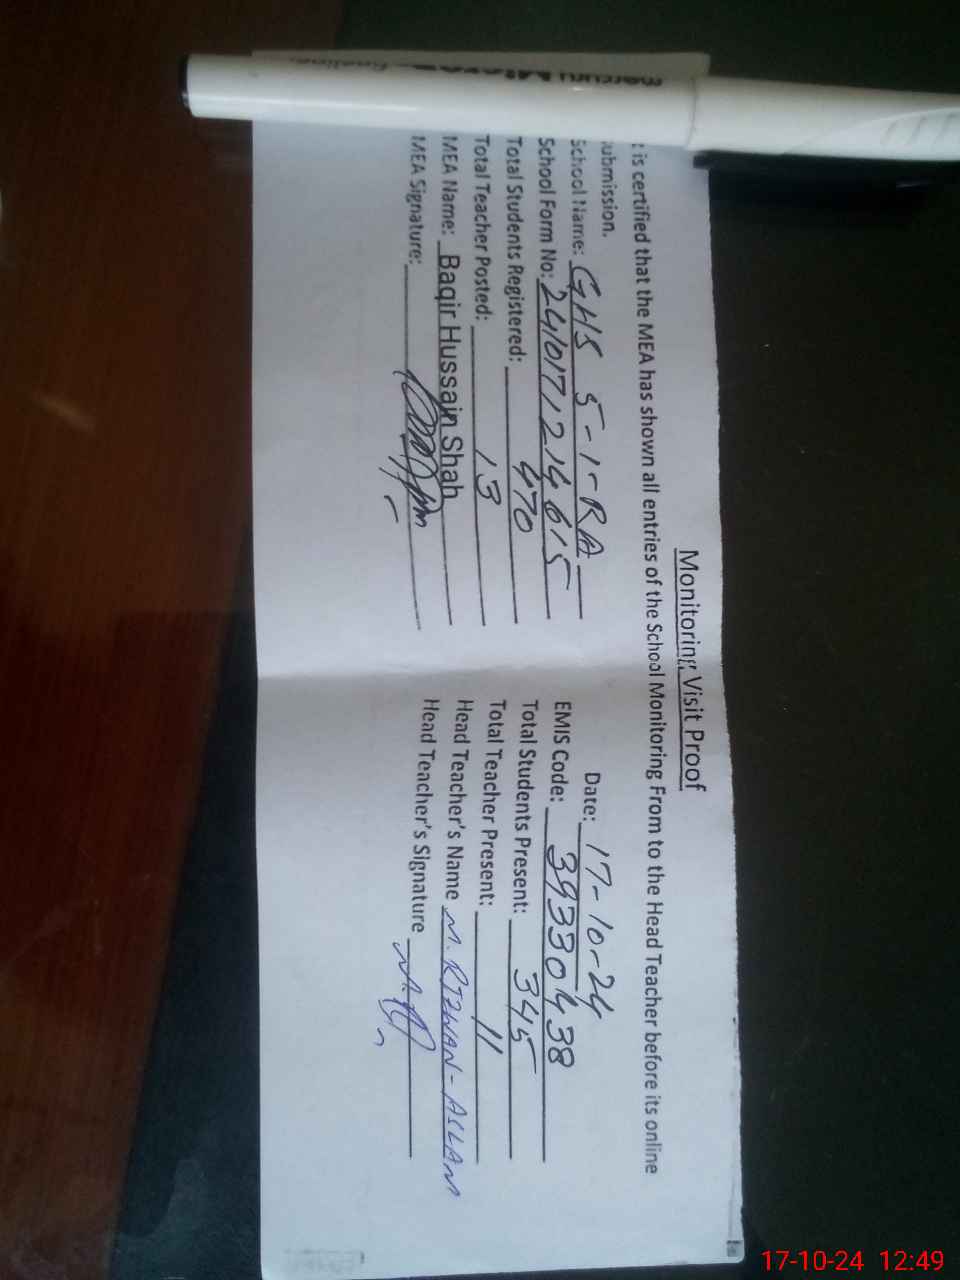 Monitoring Visit Proof
t is certified that the MEA has shown all entries of the School Monitoring From to the Head Teacher before its online
submission.
Date: 17-10-24
School Name: GHS 5-1-RA
EMIS Code: 39330438
School Form No: 2410171214615
Total Students Present: 345
Total Students Registered: 470
Total Teacher Present: 11
Total Teacher Posted: 13
Head Teacher's Name M. RIZWAN-ASLAM
MEA Name: Baqir Hussain Shah
Head Teacher's Signature
MEA Signature:
17-10-24 12:49